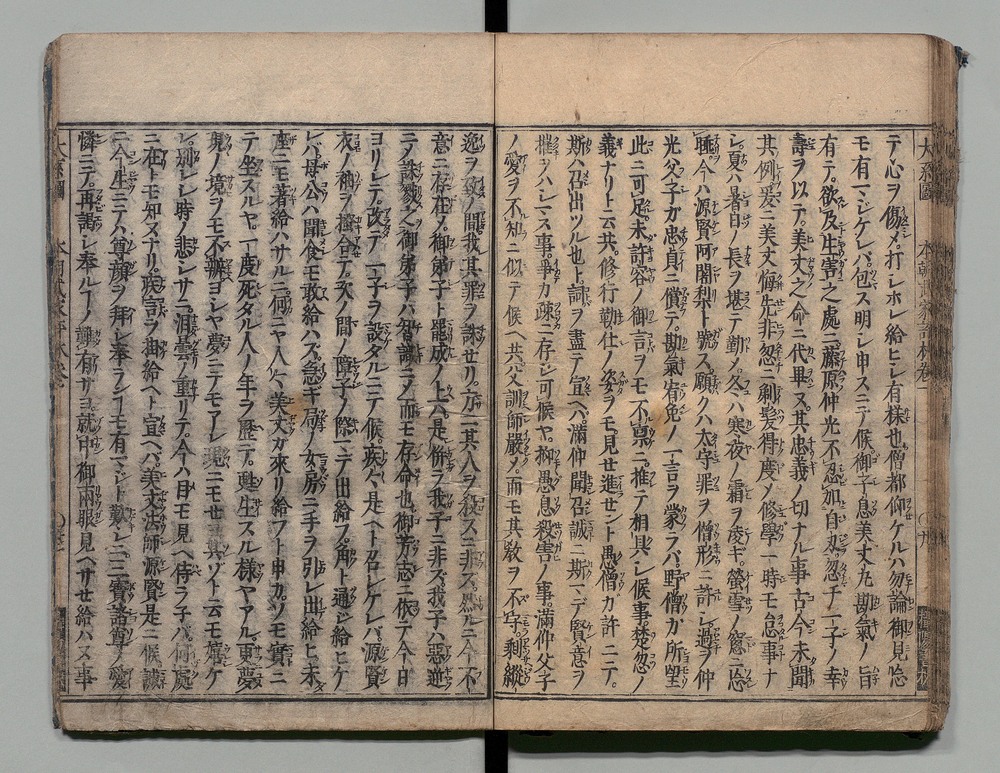 テ心ヲ傷メ打シホレ給ヒシ有樣也僧都仰ケルハ勿論御見忘
モ有マジケレバ包ス明シ申スニテ候御子息美丈丸勘氣ノ旨
有テ欲及生害之處ニ藤原仲光不忍加自刃忽チ一子ノ幸
壽ヲ以テ美丈之命ニ代畢ヌ其忠義ノ切ナル事古今未聞
其例爰ニ美丈悔先非忽ニ剃髪得度〆修學一時モ怠事ナ
シ夏ハ暑日ノ長ヲ堪テ勤冬ハ寒夜ノ霜ヲ凌ギ螢雪ノ窓ニ
睡今ハ源賢阿闍梨ト號ス願クハ太守罪ヲ僧形ニ許シ過ヲ仲
光父子カ忠貞ニ償テ勘氣宥免ノ一言ヲ蒙ラバ野僧カ所望
此ニ可足未許容ノ御言ヲモ不禀ニ推テ相具シ候事楚忽ノ
義ナリト云共修行勤仕ノ姿ヲモ見せ進せント愚僧カ許ニテ
斯ハ召出ツル也ト詞ヲ盡テ宣ヘハ滿仲聞召誠ニ斯マデ賢意ヲ
摧タハシマス事爭カ疎ニ存シ可候ヤ抑愚息殺害ノ事滿仲父子
ノ愛ヲ不知ニ似テ候ヘ共父訓師嚴〆而モ其敎ヲ不守剰縦
逸ヲ致ノ間我其罪ヲ誅せリ方ニ其人ヲ殺スニ非ズ然ルニ今不
意ニ存在ノ御弟子ト罷成ノ上ハ是併フ我子ニ非ズ我子ハ惡逆
ニテ誅戮シ御弟子バ智識ニ〆而モ存命也御芳志ニ依テ今日
ヨリシテ改テ一子ヲ設タルニテ候疾々是ヘト召シケレバ源賢
衣ノ袖ヲ搔合テ次ノ間ノ障子ノ際マテ出給フ角ト通シ給ヒケ
レバ母公ハ聞食モ敢給ハズ急ギ局ノ女房ニ手ヲ引レ出給ヒ未
座ニモ著給ハサルニ何ニヤ人々美丈カ來リ給フト申カソモ實ニ
テ坐スルヤ一度死タル人ノ年ヲ歴テ甦生スル樣ヤアル更夢
現ノ境ヲモ不辨ヨシヤ夢ニテモアレ現ニモせヨ其ゾト云モ嬉ケ
レ別レシ時ノ悲シサニ淚曇ノ重リテ今ハ目モ見ヘ侍ラ子バ何處
ニ在トモ知ヌナリ疾詞ヲ掛給ヘト宣ヘバ美丈法師源賢是ニ候誠
ニ今生ニテハ尊顔ヲ拜シ奉ランヿモ有マシト歎シニ三寶諸尊ノ愛
憐ニテ再謁シ奉ルヿノ難有サヨ就中御兩眼見ヘサせ給ハヌ事
大系圖
大系圖